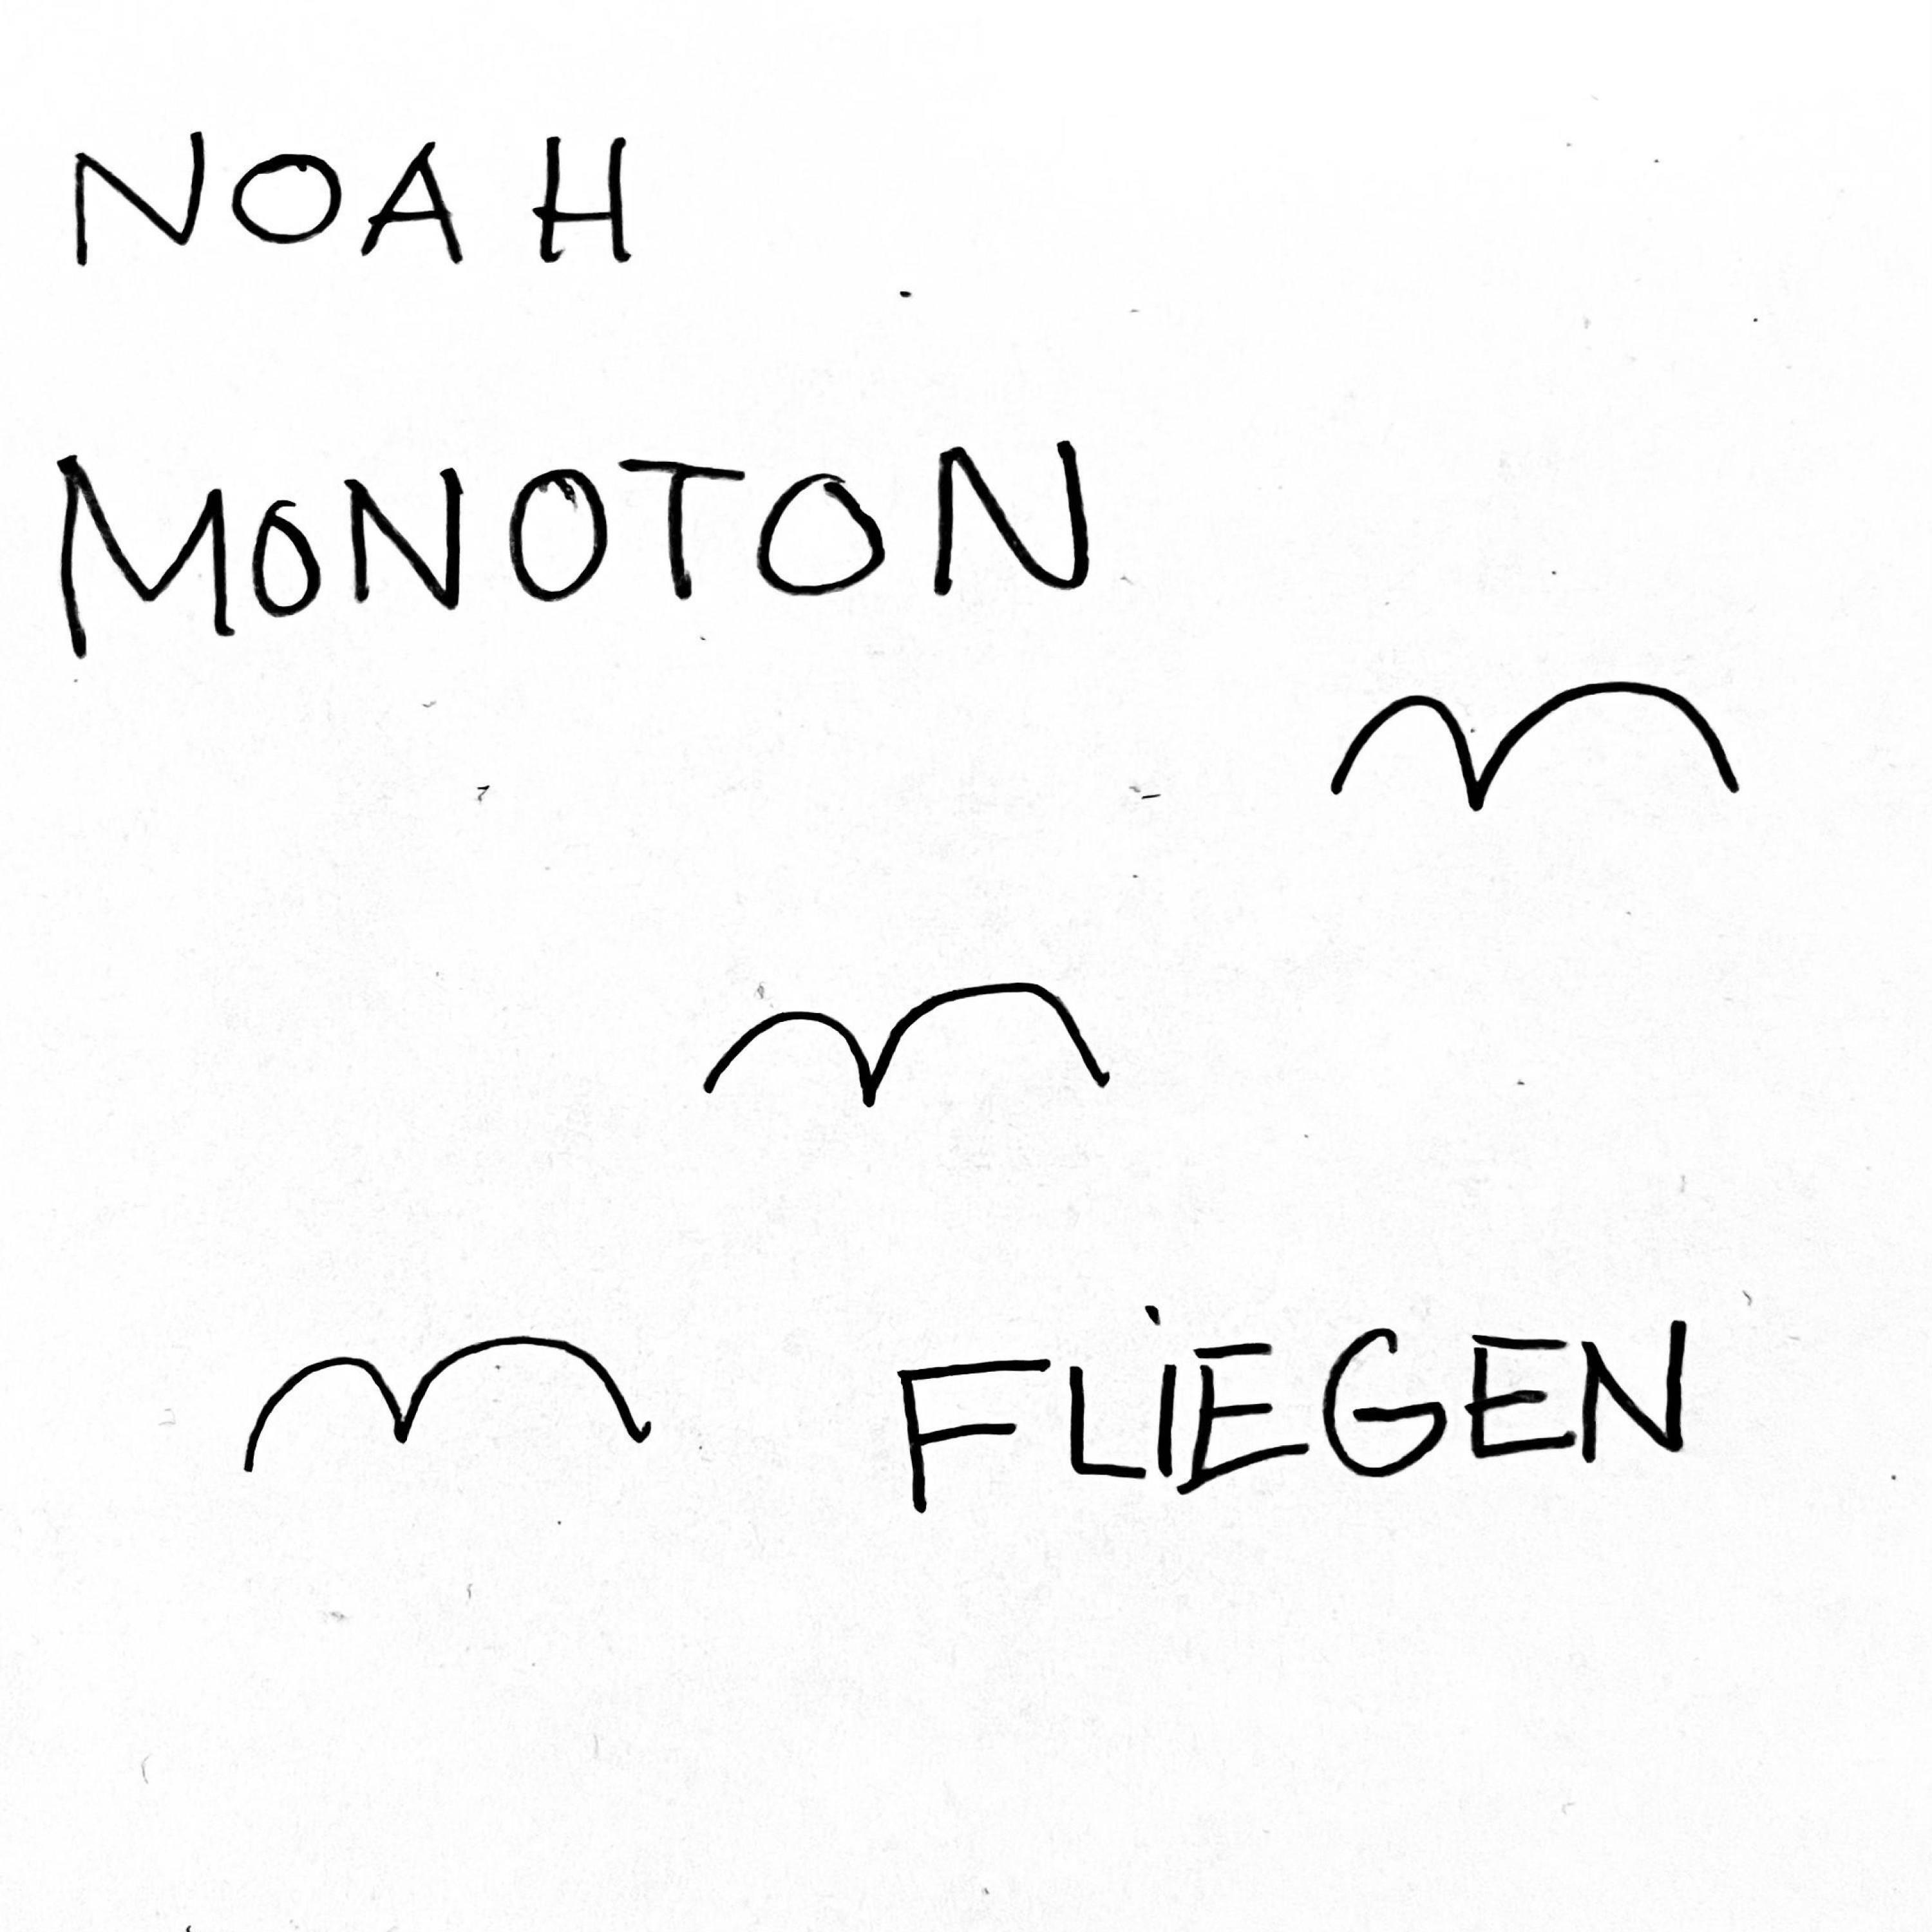 NOAH
MONOTON
FLIEGEN